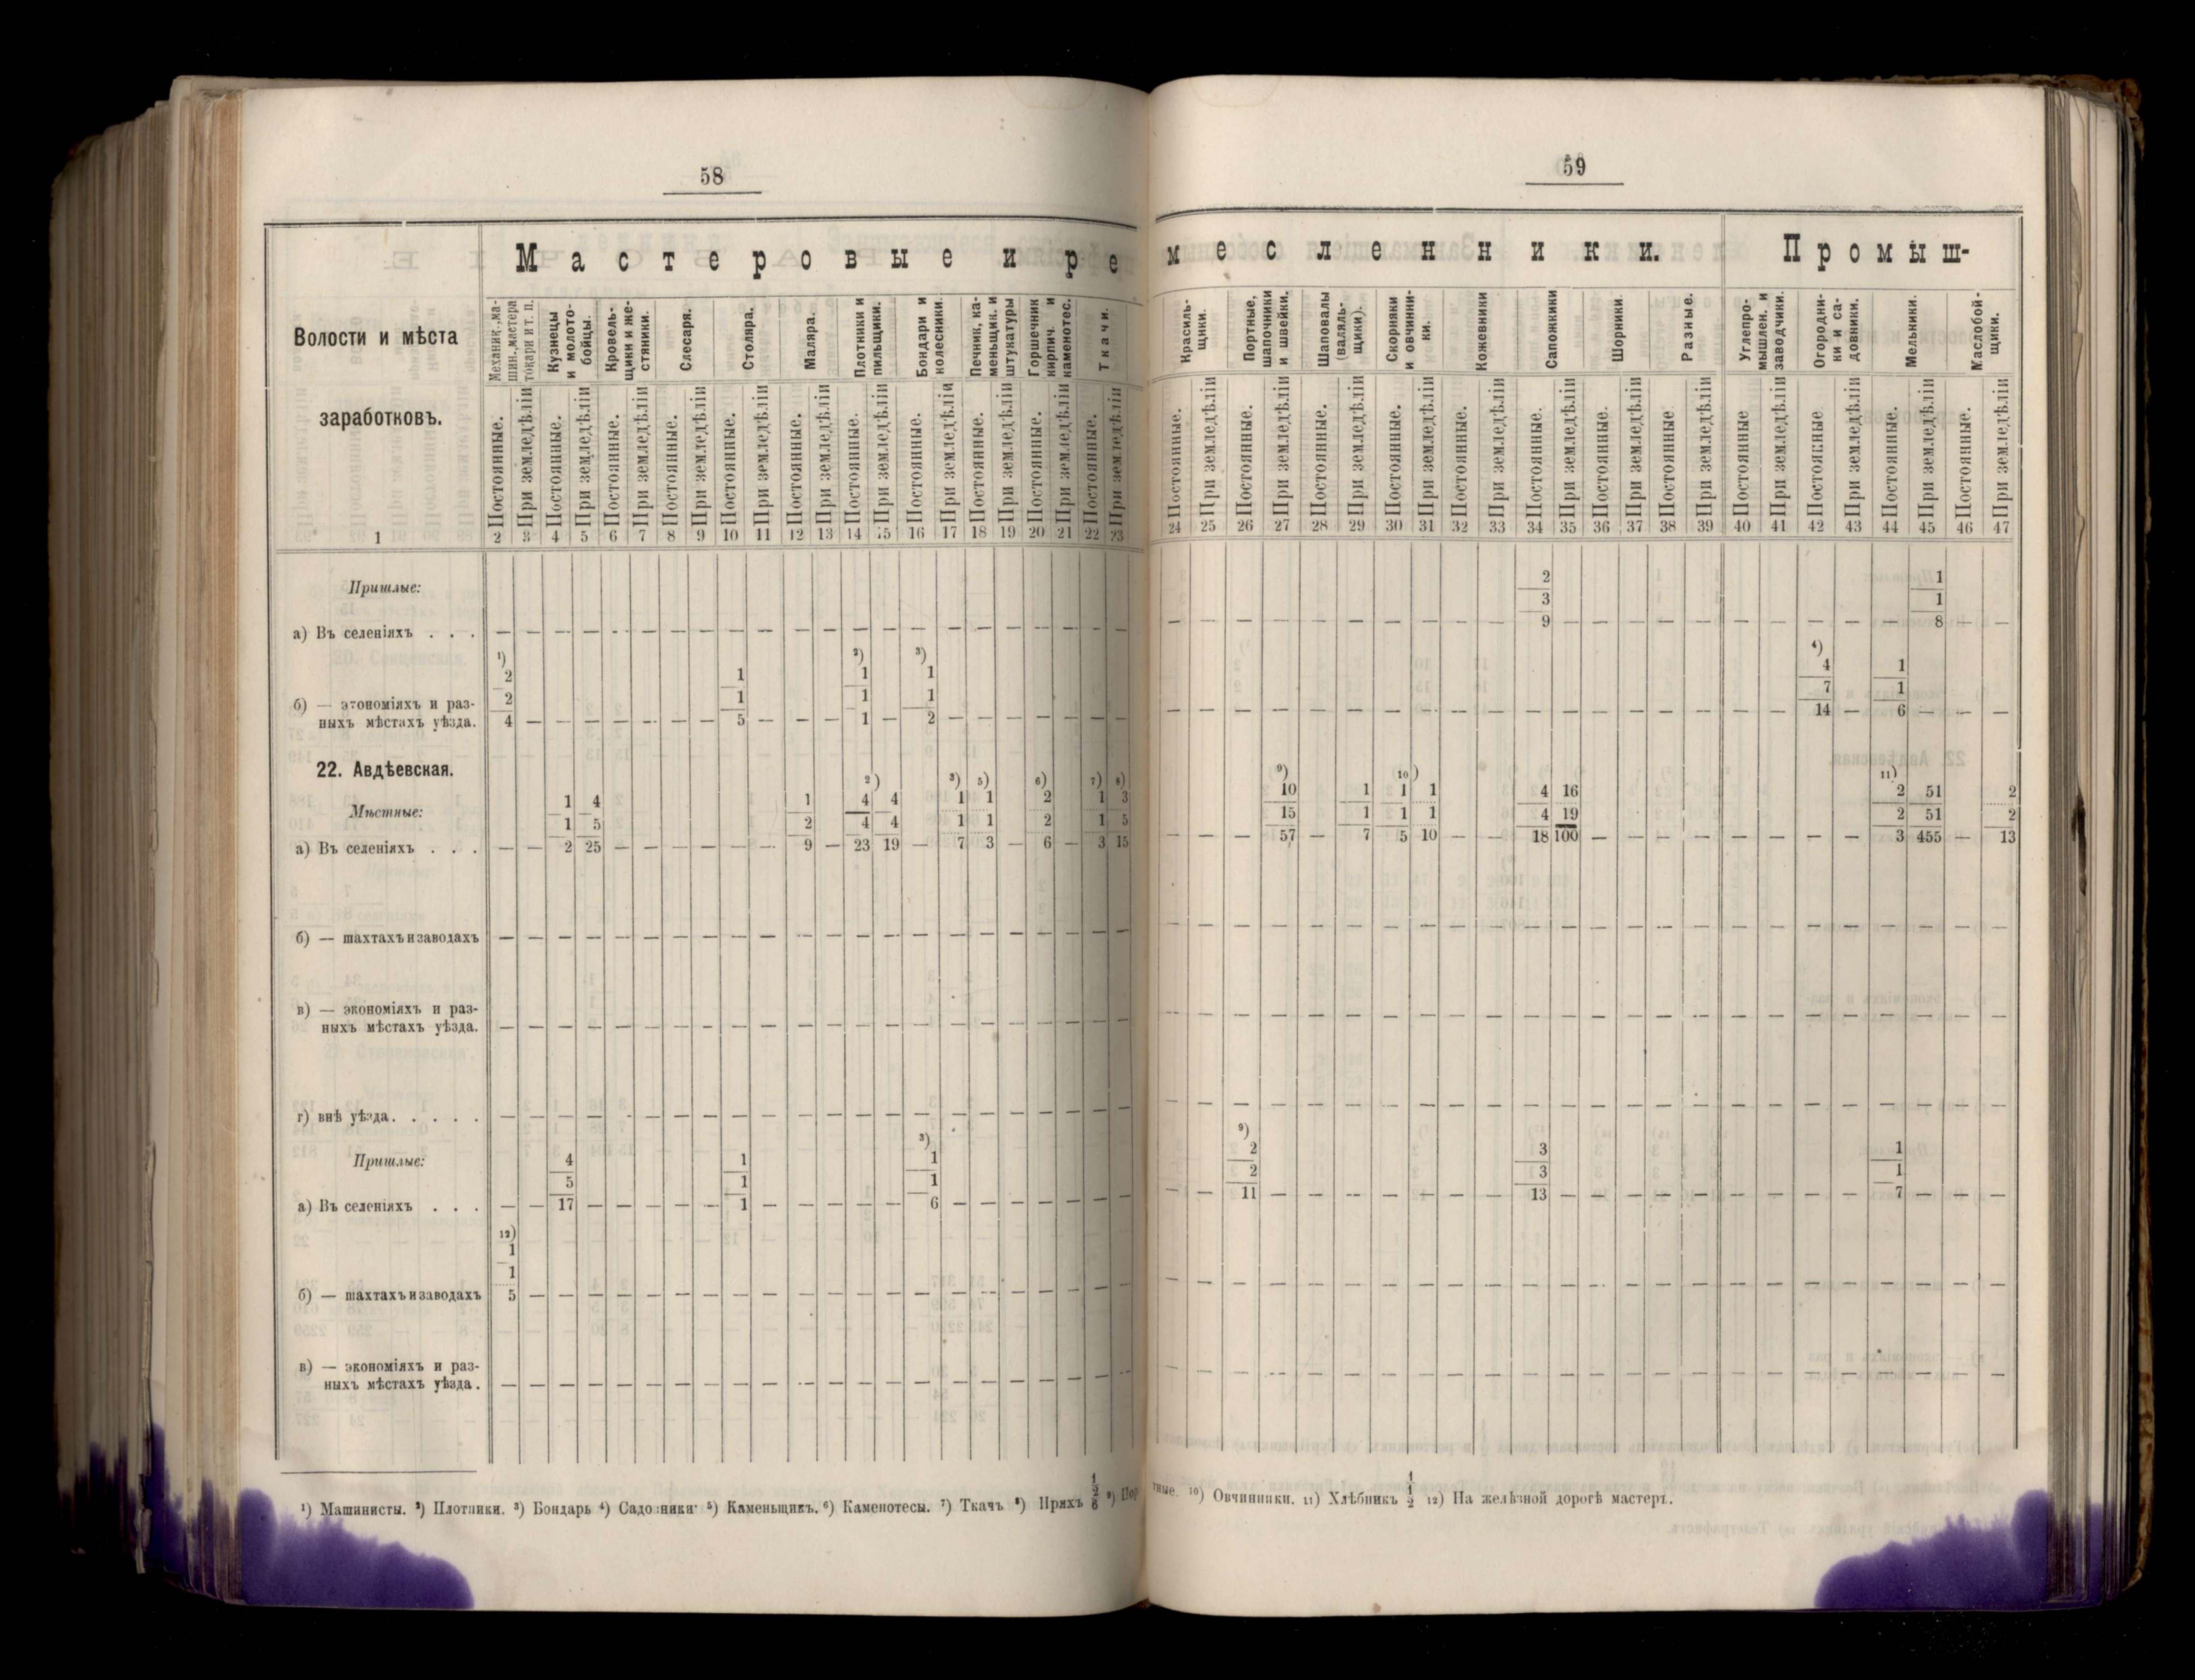 58
Мастеровые и ре
Волости и мѣста
заработковъ.
Механик., ма-
шин., мастера
токари и т. п.
Кузнецы
и молото-
бойцы.
Кровель-
щики и же-
стяники.
Слесаря.
Столяра.
Маляра.
Плотники и
пильщики.
Бондари и
колесники.
Печник, ка-
меньщик. и
штукатуры
Горшечник
кирпич. и
каменотес.
Ткачи.
Постоянные. При земледѣліи Постоянные. При земледѣліи Постоянные. При земледѣліи Постоянные. При земледѣліи Постоянные. При земледѣліи Постоянные. При земледѣліи Постоянные. При земледѣліи Постоянные. При земледѣліи Постоянные. При земледѣліи Постоянные. При земледѣліи Постоянные. При земледѣліи
1 2 3 4 5 6 7 8 9 10 11 12 13 14 15 16 17 18 19 20 21 22 23
Пришлые:
а) Въ селеніяхъ . . . — — — — — — — — — — — — — — — — — — — — — —
¹) ²) ³)
2 1 1 1
2 1 1 1
б) — экономіяхъ и раз-
ныхъ мѣстахъ уѣзда. 4 — — — — — — — 5 — — — 1 — 2 — — — — — — —
22. Авдѣевская.
²) ³) ⁵) ⁶) ⁷) ⁸)
Мѣстные:
1 4 1 4 4 1 1 2 1 3
1 5 2 4 4 1 1 2 1 5
а) Въ селеніяхъ . . . — — 2 25 — — — — — — 9 — 23 19 — 7 3 — 6 — 3 15
б) — шахтахъ и заводахъ — — — — — — — — — — — — — — — — — — — — — —
в) — экономіяхъ и раз-
ныхъ мѣстахъ уѣзда. — — — — — — — — — — — — — — — — — — — — — —
г) внѣ уѣзда. . . . . — — — — — — — — — — — — — — — — — — — — — —
³)
Пришлые:
4 1 1
5 1 1
а) Въ селеніяхъ . . . — — 17 — — — — — 1 — — — — — 6 — — — — — — —
¹²)
1
1
б) — шахтахъ и заводахъ 5 — — — — — — — — — — — — — — — — — — — — —
в) — экономіяхъ и раз-
ныхъ мѣстахъ уѣзда. — — — — — — — — — — — — — — — — — — — — — —
¹) Машинисты. ²) Плотники. ³) Бондарь ⁴) Садовники ⁵) Каменьщикъ. ⁶) Каменотесы. ⁷) Ткачъ ⁸) Пряхъ ⁹) Пор
59
месленники. Промыш-
Красиль-
щики.
Портные,
шапочники
и швейки.
Шаповалы
(валяль-
щики).
Скорняки
и овчинни-
ки.
Кожевники
Сапожкики
Шорники
Разные.
Углепро-
мышлен. и
заводчики.
Огородни-
ки и са-
довники.
Мельники.
Маслобой-
щики.
Постоянные. При земледѣліи Постоянные. При земледѣліи Постоянные. При земледѣліи Постоянные. При земледѣліи Постоянные. При земледѣліи Постоянные. При земледѣліи Постоянные. При земледѣліи Постоянные При земледѣліи Постоянные При земледѣліи Постоянные При земледѣліи Постоянные. При земледѣліи Постоянные. При земледѣліи
24 25 26 27 28 29 30 31 32 33 34 35 36 37 38 39 40 41 42 43 44 45 46 47
2 1
3 1
— — — — — — — — — — 9 — — — — — — — — — — 8 — —
⁴)
4 1
7 1
— — — — — — — — — — — — — — — — — — 14 — 6 — — —
⁹) ¹⁰) ¹¹)
10 1 1 1 4 16 2 51 2
15 1 1 1 4 19 2 51 2
— — — 57 — 7 5 10 — — 18 100 — — — — — — — — 3 455 — 13
— — — — — — — — — — — — — — — — — — — — — — — —
— — — — — — — — — — — — — — — — — — — — — — — —
— — — — — — — — — — — — — — — — — — — — — — — —
⁹)
2 3 1
2 3 1
— — 11 — — — — — — — 13 — — — — — — — — — 7 — — —
— — — — — — — — — — — — — — — — — — — — — — — —
— — — — — — — — — — — — — — — — — — — — — — — —
тные. ¹⁰) Овчинники. ¹¹) Хлѣбникъ ½ ¹²) На желѣзной дорогѣ мастеръ.